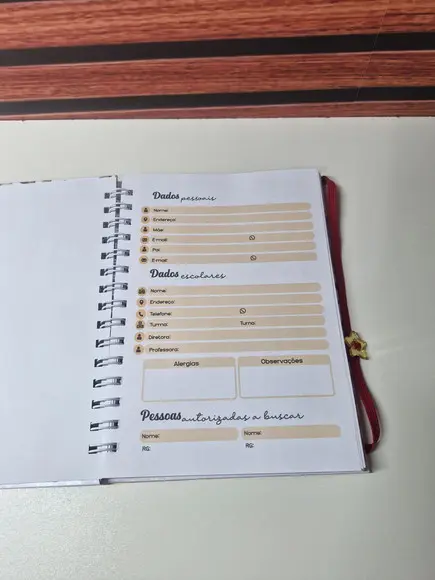 Dados pessoais
Nome:
Endereço:
Mãe:
E-mail:
Pai:
E-mail:
Dados escolares
Nome:
Endereço:
Telefone:
Turma: Turno:
Diretora:
Professora:
Alergias Observações
Pessoas autorizadas a buscar
Nome: Nome:
RG: RG: